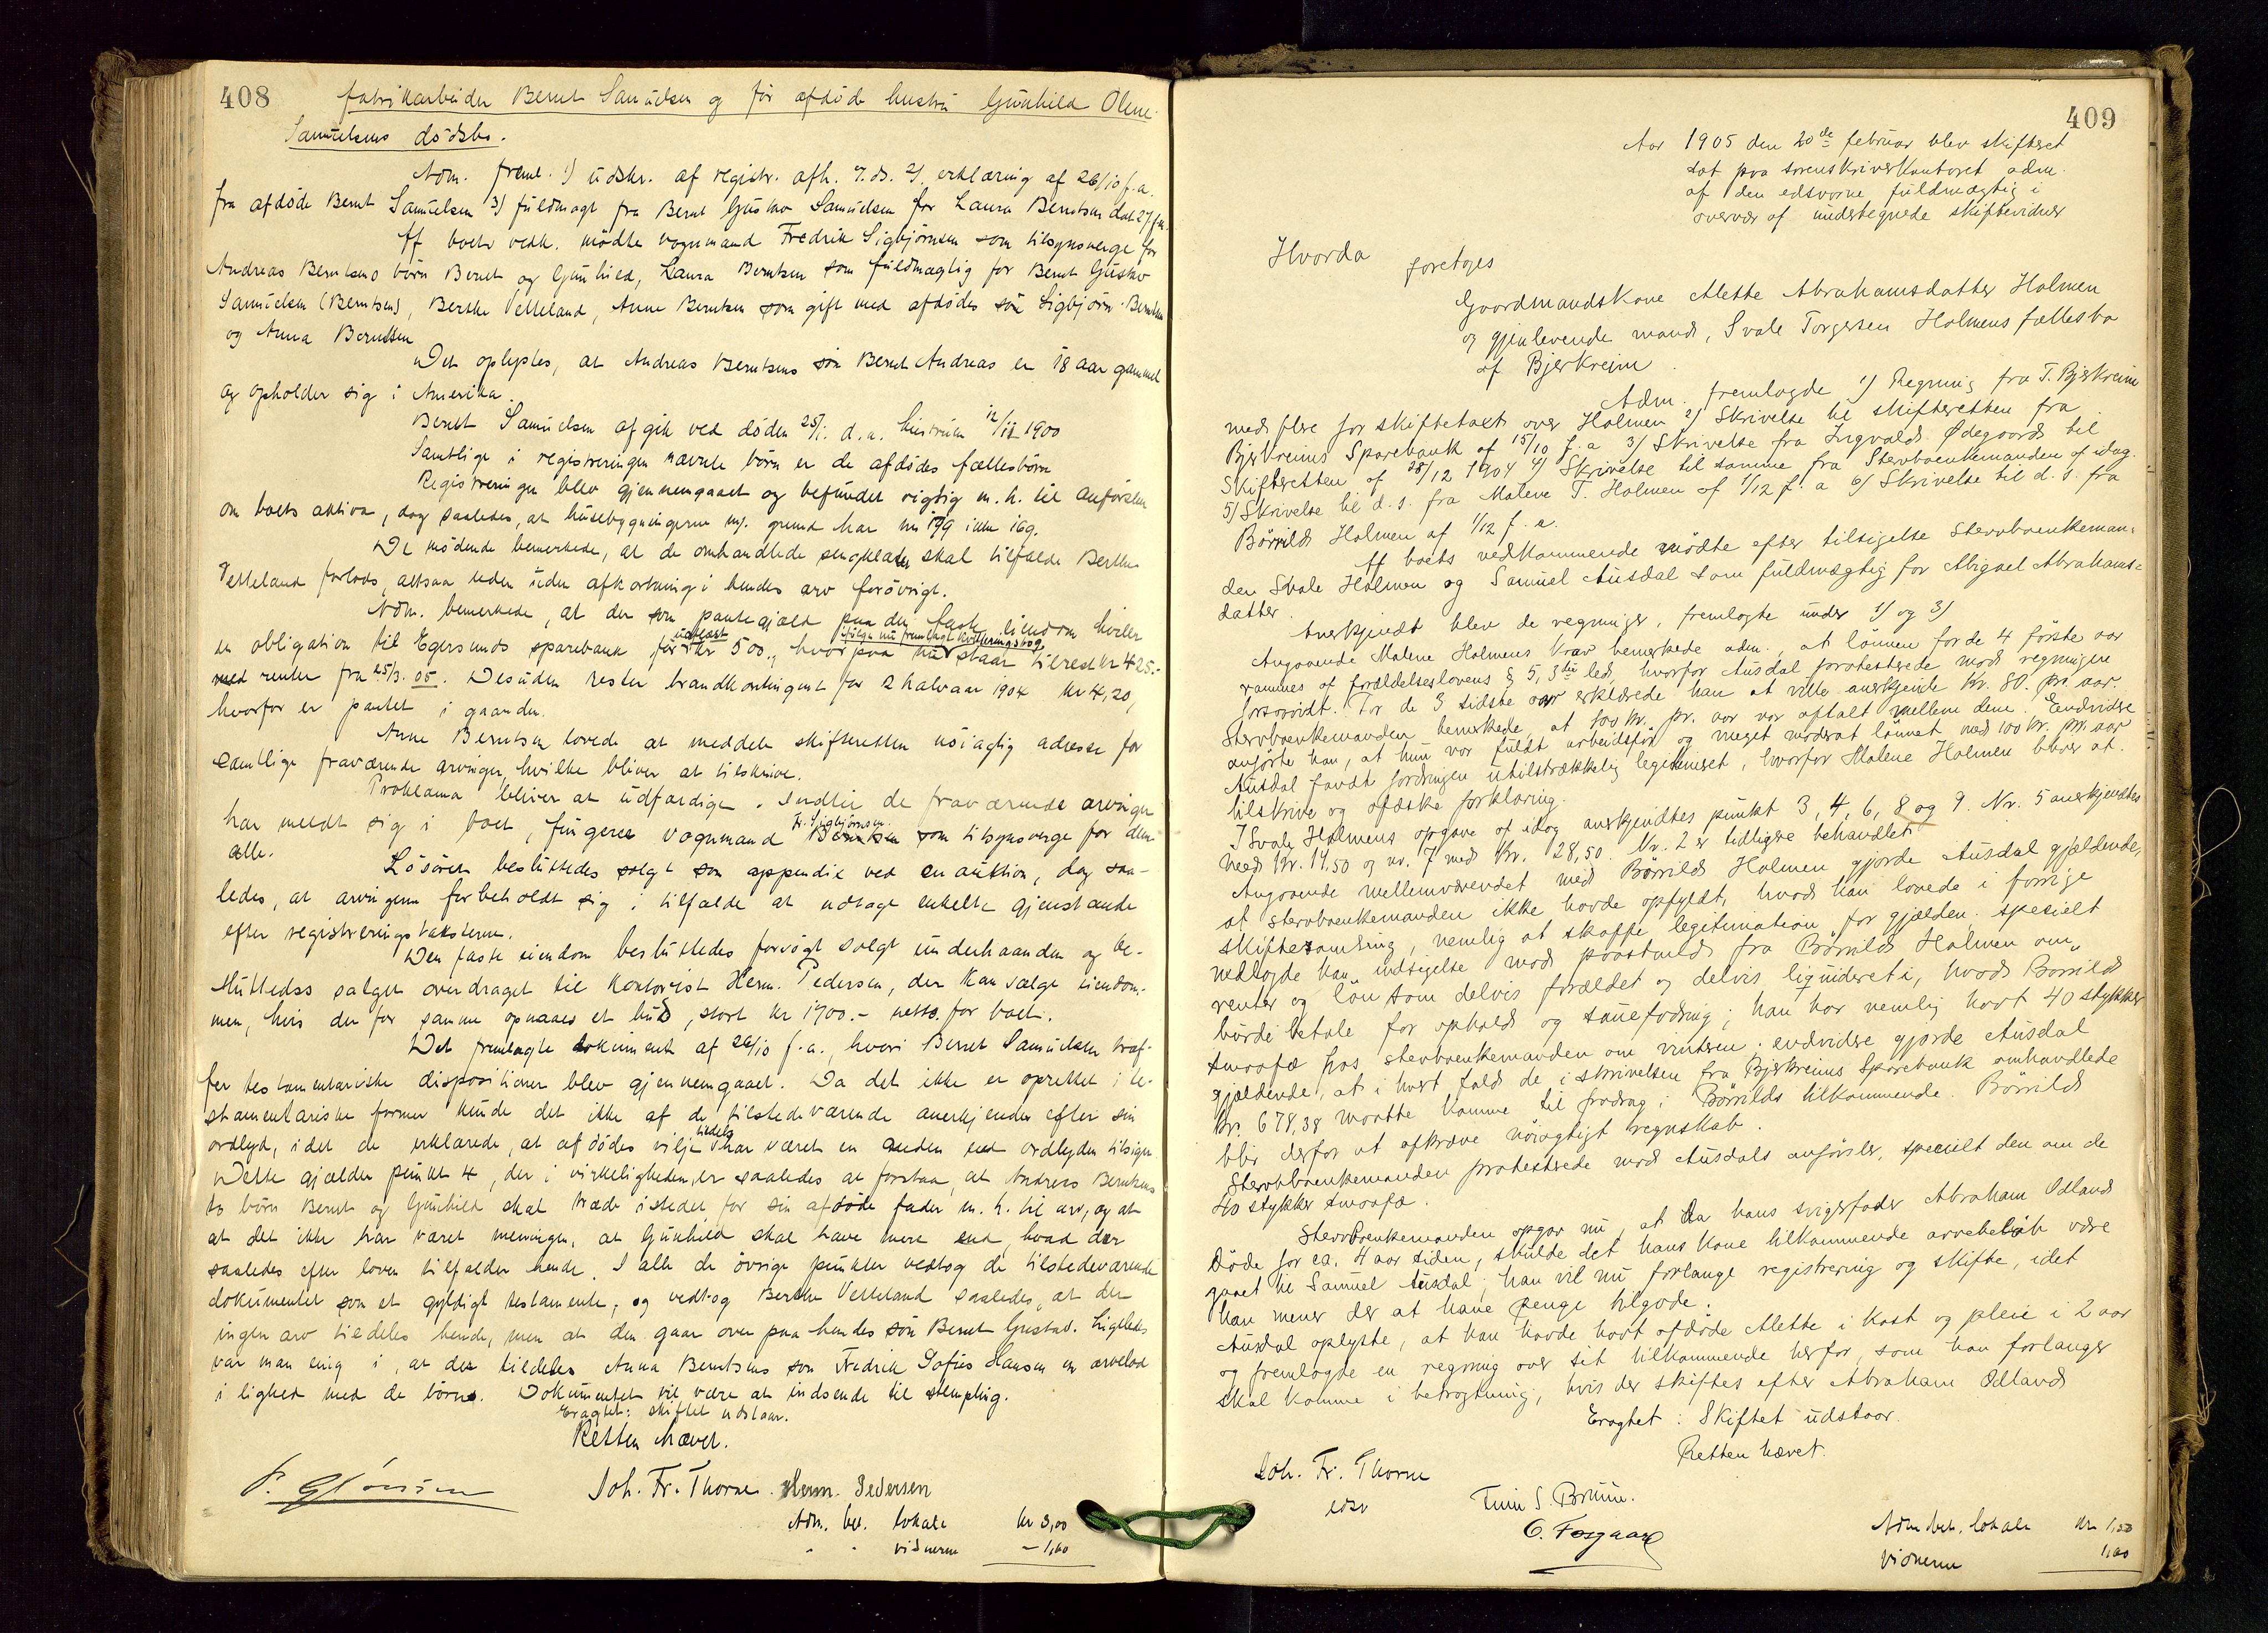 408
fabrikarbeider Bernt Samuelsen og før afdøde hustru Gunhild Olene
Samuelsens dødsbo.
Adm. freml. 1) udskr. af registr. afh. 7. ds. 2) erklæring af 26/10 f. a.
fra afdøde Bernt Samuelsen 3) fuldmagt fra Bernt Gustav Samuelsen for Laura Berntsen dat 27/
Af boets vedk. mødte vognmand Fredrik Sigbjørnsen som tilsynsverge for
Andreas Berntsens børn Bernt og Gunhild, Laura Berntsen som fuldmægtig for Bernt Gustav
Samuelsen (Berntsen), Berthe Velleland, Anne Berntsen som gift med afdødes søn Sigbjørn Berntsen
og Anna Berntsen
Det oplystes, at Andreas Berntsens søn Bernt Andreas er 18 aar gammel
og opholder sig i Amerika.
Berndt Samuelsen afgik ved døden 25/1. d. a. hustruen 12/12 1900
Samtlige i registreringen nævnte børn er de afdødes fællesbørn
Registreringen blev gjennemgaaet og befundet rigtig m. h. til anførslen
om boets aktiva, dog saaledes, at husebygningerne m/ grund har no 179 ikke 169.
De mødende bemerkede, at de omhandlede sengklæder skal tilfalde Berthe
Velleland forlods, altsaa uden afkortning i hendes arv forøvrigt.
Adm. bemerkede, at der som pantegjæld paa den faste eiendom hviler
en obligation til Egersunds sparebank for udlaant kr 500., hvorpaa ifølge nu fremlagt kvitteringsbog nu staar tilrest kr 425.-
med renter fra 25/3. 05. Desuden rester brandkontingent for 2 halvaar 1904 kr 4,20,
hvorfor er pantet i gaarden.
Anne Berntsen lovede at meddele skifteretten nøiagtig adresse for
samtlige fraværende arvinger, hvilke bliver at tilskrive.
Proklama bliver at udfærdige. Indtil de fraværende arvinger
har meldt sig i boet, fungerer vognmand Fr. Sigbjørnsen som tilsynsverge for dem
alle.
Løsøret besluttedes solgt som appendix ved en auktion, dog saa-
ledes, at arvingerne forbeholdt sig i tilfælde at udtage enkelte gjenstande
efter registreringstaksterne.
Den faste eiendom besluttedes forsøgt solgt underhaanden og be-
sluttedes salget overdraget til kontorist Herm. Pedersen, der kan sælge eiendom-
men, hvis der for samme opnaaes et bud, stort kr 1900.- netto for boet.
Det fremlagte dokument af 26/10 f. a., hvori Bernt Samuelsen træf-
fer testamentariske dispositioner blev gjennemgaaet. Da det ikke er oprettet i te-
stamentariske former kunde det ikke af de tilstedeværende anerkjendes efter sin
ordlyd, idet de erklærede, at afdødes vilje tildels har været en anden end ordlyden tilsiger
Dette gjælder punkt 4, der i virkeligheden er saaledes at forstaa, at Andreas Berntsens
to børn Bernt og Gunhild skal træde istedet for sin afdøde fader m. h. til arv, og at
at det ikke har været meningen, at Gunhild skal have mere end, hvad der
saaledes efter loven tilfalder hende. I alle de øvrige punkter vedtog de tilstedeværende
dokumentet som et gyldigt testamente, og vedtog Berthe Velleland saaledes, at der
ingen arv tildeles hende, men at den gaar over paa hendes søn Bernt Gustav. Ligeledes
var man enig i, at der tildeles Anna Berntsens søn Fredrik Sofus Hansen en arvelod
i lighed med de børns. Dokumentet vil være at indsende til stempling.
Eragtet: skiftet udstaar.
Retten hævet.
Joh. Fr. Thorne. Herm. Pedersen
Adm. bet. lokale kr 3,00
" " vidnerne - 1,60
409
Aar 1905 den 20de februar blev skifteret
sat paa sorenskriverkontoret adm.
af den edsvorne fuldmægtig i
overvær af undertegnede skiftevidner
Hvorda
foretoges
Gaardmandskone Alette Abrahamsdatter Holmen
og gjenlevende mand, Svale Torgersen Holmens fællesbo
af Bjerkreim.
Adm. fremlagde 1) Regning fra T. Bjerkreim
med flere for skiftetakt over Holmen 2) Skrivelse til skifteretten fra
Bjerkreims Sparebank af 15/10 f. a 3) Skrivelse fra Ingvald Ødegaard til
Skifteretten af 28/12 1904 4) Skrivelse til samme fra Stervboenkemanden af idag.
5) Skrivelse til d. s. fra Malene T. Holmen af 1/12 f. a 6) Skrivelse til d. s. fra
Børrild Holmen af 1/12 f. a.
Af boets vedkommende mødte efter tilsigelse Stervboenkeman-
den Svale Holmen og Samuel Ausdal som fuldmægtig for Abigael Abrahams-
datter.
Anerkjendt blev de regninger, fremlagte under 1) og 3)
Angaaende Malene Holmens krav bemerkede adm., at lønnen for de 4 første aar
rammes af forældelseslovens § 5, 3die led, hvorfor Ausdal protesterede mod regningen
forsaavidt. For de 3 sidste aar erklærede han at ville anerkjende kr. 80. pr. aar.
Stervboenkemanden bemerkede, at 100 kr. pr. aar var aftalt mellem dem. Endvidere
anførte han, at hun var fuldt arbeidsfør og meget moderat lønnet med 100 kr. pr. aar
Ausdal fandt fordringen utilstrækkelig legitimeret, hvorfor Malene Holmen bliver at
tilskrive og afæske forklaring.
I Svale Holmens opgave af idag anerkjendtes punkt 3, 4, 6, 8 og 9. Nr. 5 anerkjendtes
med kr. 14.50 og nr. 7 med kr. 28,50. Nr. 2 er tidligere behandlet.
Angaaende mellemværendet med Børrild Holmen gjorde Ausdal gjældende,
at stervboenkemanden ikke havde opfyldt, hvad han lovede i forrige
skiftesamling, nemlig at skaffe legitimation for gjælden; specielt
nedlagde han indsigelse mod paastand fra Børrild Holmen om
renter og løn som delvis forældet og delvis lignideret i, hvad Børrild
burde betale for ophold og sauefodring; han har nemlig havt 40 stykker
smaafæ hos stervboenkemanden om vintren; endvidere gjorde Ausdal
gjældende, at i hvert fald de i skrivelsen fra Bjerkreims Sparebank omhandlede
kr. 678,38 maatte komme til fradrag i Børrilds tilkommende. Børrild
blir derfor at afkræve nøiagtigt regnskab.
Stervboenkemanden protesterede mod Ausdals anførsler, specielt den om de
40 stykker smaafæ.
Stervboenkemanden opgav nu, at da hans svigerfader Abraham Odland
døde for ca. 4 aar siden, skulde det hans kone tilkommende arvebeløb være
gaaet til Samuel Ausdal; han vil nu forlange registrering og skifte, idet
han mener der at have penge tilgode.
Ausdal oplyste, at han havde havt afdøde Alette i kost og pleie i 2 aar
og fremlagde en regning over sit tilkommende herfor, som han forlanger
skal komme i betragtning, hvis der skiftes efter Abraham Odland
Eragtet: Skiftet udstaar.
Retten hævet.
Joh. Fr. Thorne
edsv
Tnin S. Bruun.
O. Fosgaard
Adm bet. lokale kr 1,00
vidnerne 1,60